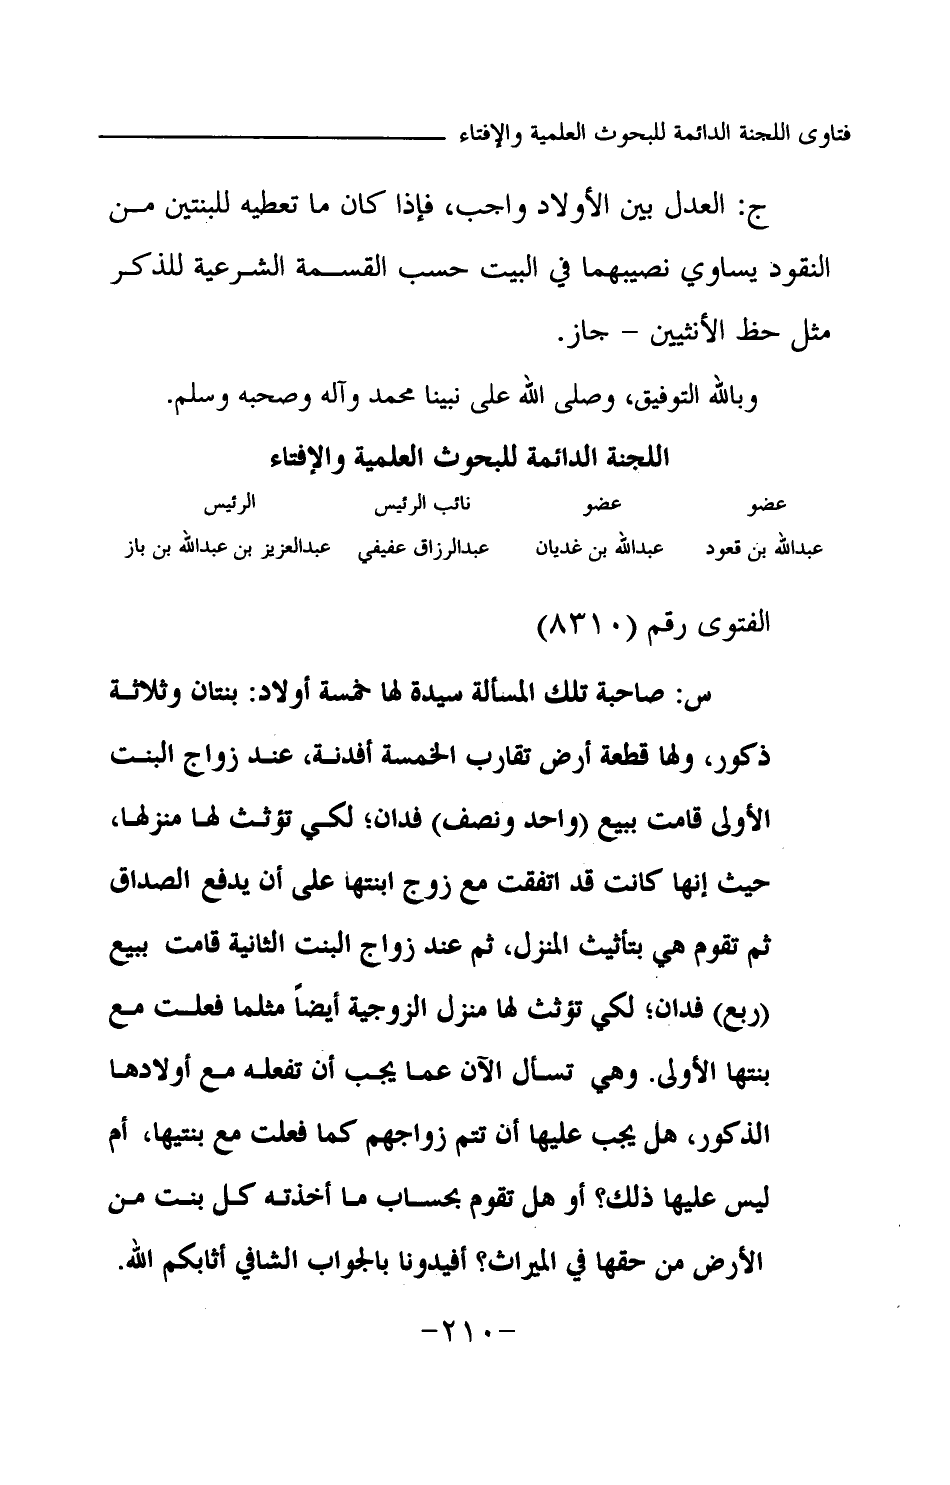 فتاوى اللجنة الدائمة للبحوث العلمية والإفتاء
ج: العدل بين الأولاد واجب، فإذا كان ما تعطيه للبنتين من
النقود يساوي نصيبهما في البيت حسب القسمة الشرعية للذكر
مثل حظ الأنثيين – جاز.
وبالله التوفيق، وصلى الله على نبينا محمد وآله وصحبه وسلم.
اللجنة الدائمة للبحوث العلمية والإفتاء
عضو عضو نائب الرئيس الرئيس
عبدالله بن قعود عبدالله بن غديان عبدالرزاق عفيفي عبدالعزيز بن عبدالله بن باز
الفتوى رقم (٨٣١٠)
س: صاحبة تلك المسألة سيدة لها خمسة أولاد: بنتان وثلاثة
ذكور، ولها قطعة أرض تقارب الخمسة أفدنة، عند زواج البنت
الأولى قامت ببيع (واحد ونصف) فدان؛ لكي تؤثث لها منزلها،
حيث إنها كانت قد اتفقت مع زوج ابنتها على أن يدفع الصداق
ثم تقوم هي بتأثيث المنزل، ثم عند زواج البنت الثانية قامت ببيع
(ربع) فدان؛ لكي تؤثث لها منزل الزوجية أيضاً مثلما فعلت مع
بنتها الأولى. وهي تسأل الآن عما يجب أن تفعله مع أولادها
الذكور، هل يجب عليها أن تتم زواجهم كما فعلت مع بنتيها، أم
ليس عليها ذلك؟ أو هل تقوم بحساب ما أخذته كل بنت من
الأرض من حقها في الميراث؟ أفيدونا بالجواب الشافي أثابكم الله.
–٢١٠–